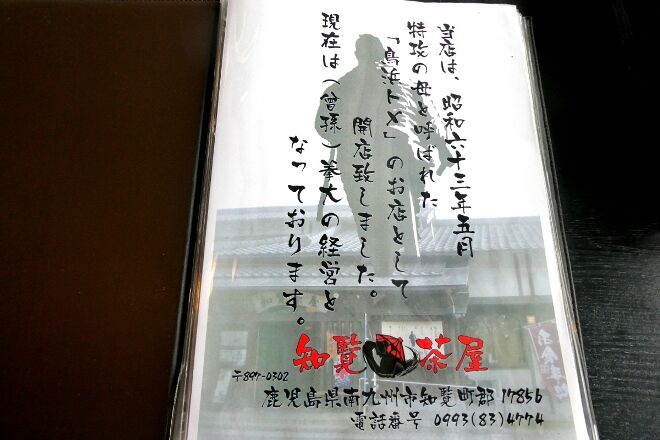 当店は、昭和六十三年五月
特攻の母と呼ばれた
「鳥浜トメ」のお店として
開店致しました。
現在は(曾孫)拳大の経営と
なっております。
知覧茶屋
〒897-0302
鹿児島県南九州市知覧町郡 17856
電話番号 0993(83)4774